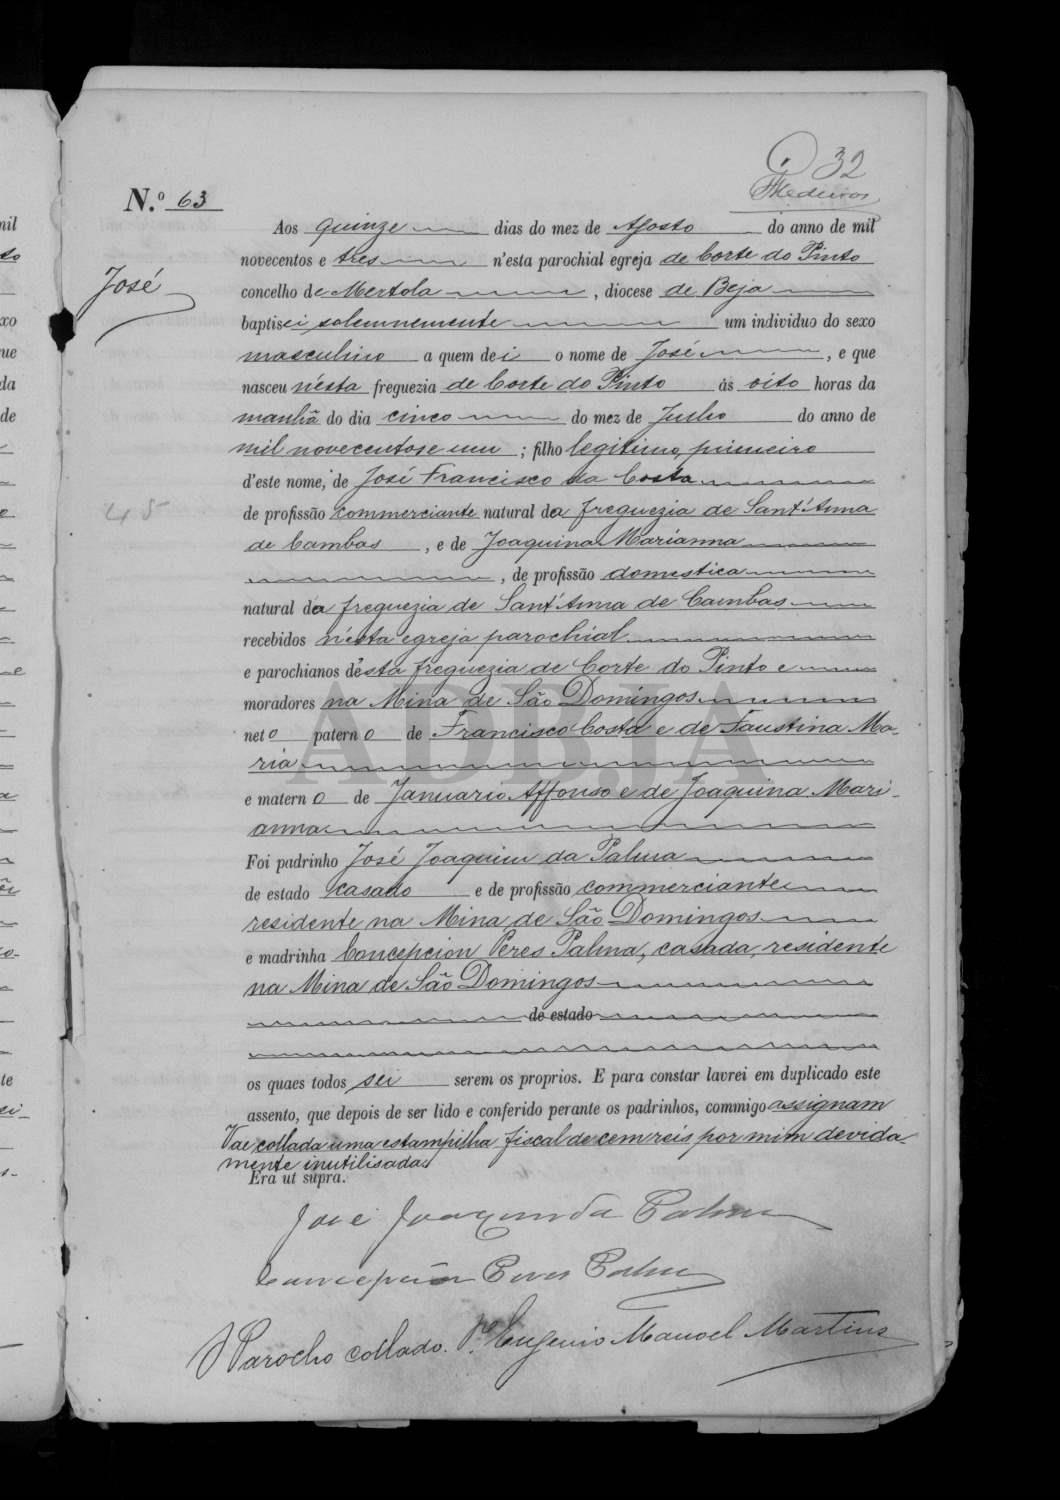 32
Medeiros
N.º 63
José
Aos quinze dias do mez de Agosto do anno de mil
novecentos e tres n'esta parochial egreja de Corte do Pinto
concelho de Mertola, diocese de Beja
baptisei solemnemente um individuo do sexo
masculino a quem dei o nome de José, e que
nasceu n'esta freguezia de Corte do Pinto ás oito horas da
manhã do dia cinco do mez de Julho do anno de
mil novecentos e um; filho legitimo, primeiro
d'este nome, de José Francisco da Costa
de profissão commerciante natural da freguezia de Sant'Anna
de Cambas, e de Joaquina Marianna
, de profissão domestica
natural da freguezia de Sant'Anna de Cambas
recebidos n'esta egreja parochial
e parochianos d'esta freguezia de Corte do Pinto e
moradores na Mina de São Domingos
neto paterno de Francisco Costa e de Faustina Ma-
ria
e materno de Januario Affonso e de Joaquina Mari-
anna
Foi padrinho José Joaquim da Palma
de estado casado e de profissão commerciante
residente na Mina de São Domingos
e madrinha Concepcion Peres Palma, casada, residente
na Mina de São Domingos
de estado
os quaes todos sei serem os proprios. E para constar lavrei em duplicado este
assento, que depois de ser lido e conferido perante os padrinhos, commigo assignam
Vae collada uma estampilha fiscal de cem reis por mim devida-
mente inutilisada.
Era ut supra.
José Joaquim da Palma
Concepción Peres Palma
O Parocho collado. P.e Eugenio Manoel Martins
45
ADBJA